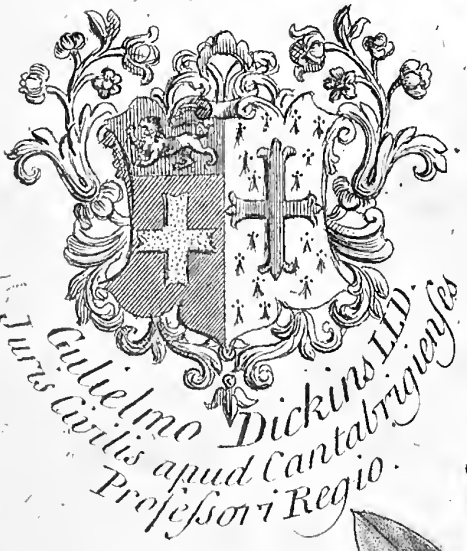 Gulielmo Dickins LLD.
Juris Civilis apud Cantabrigienſes
Profeſsori Regio.